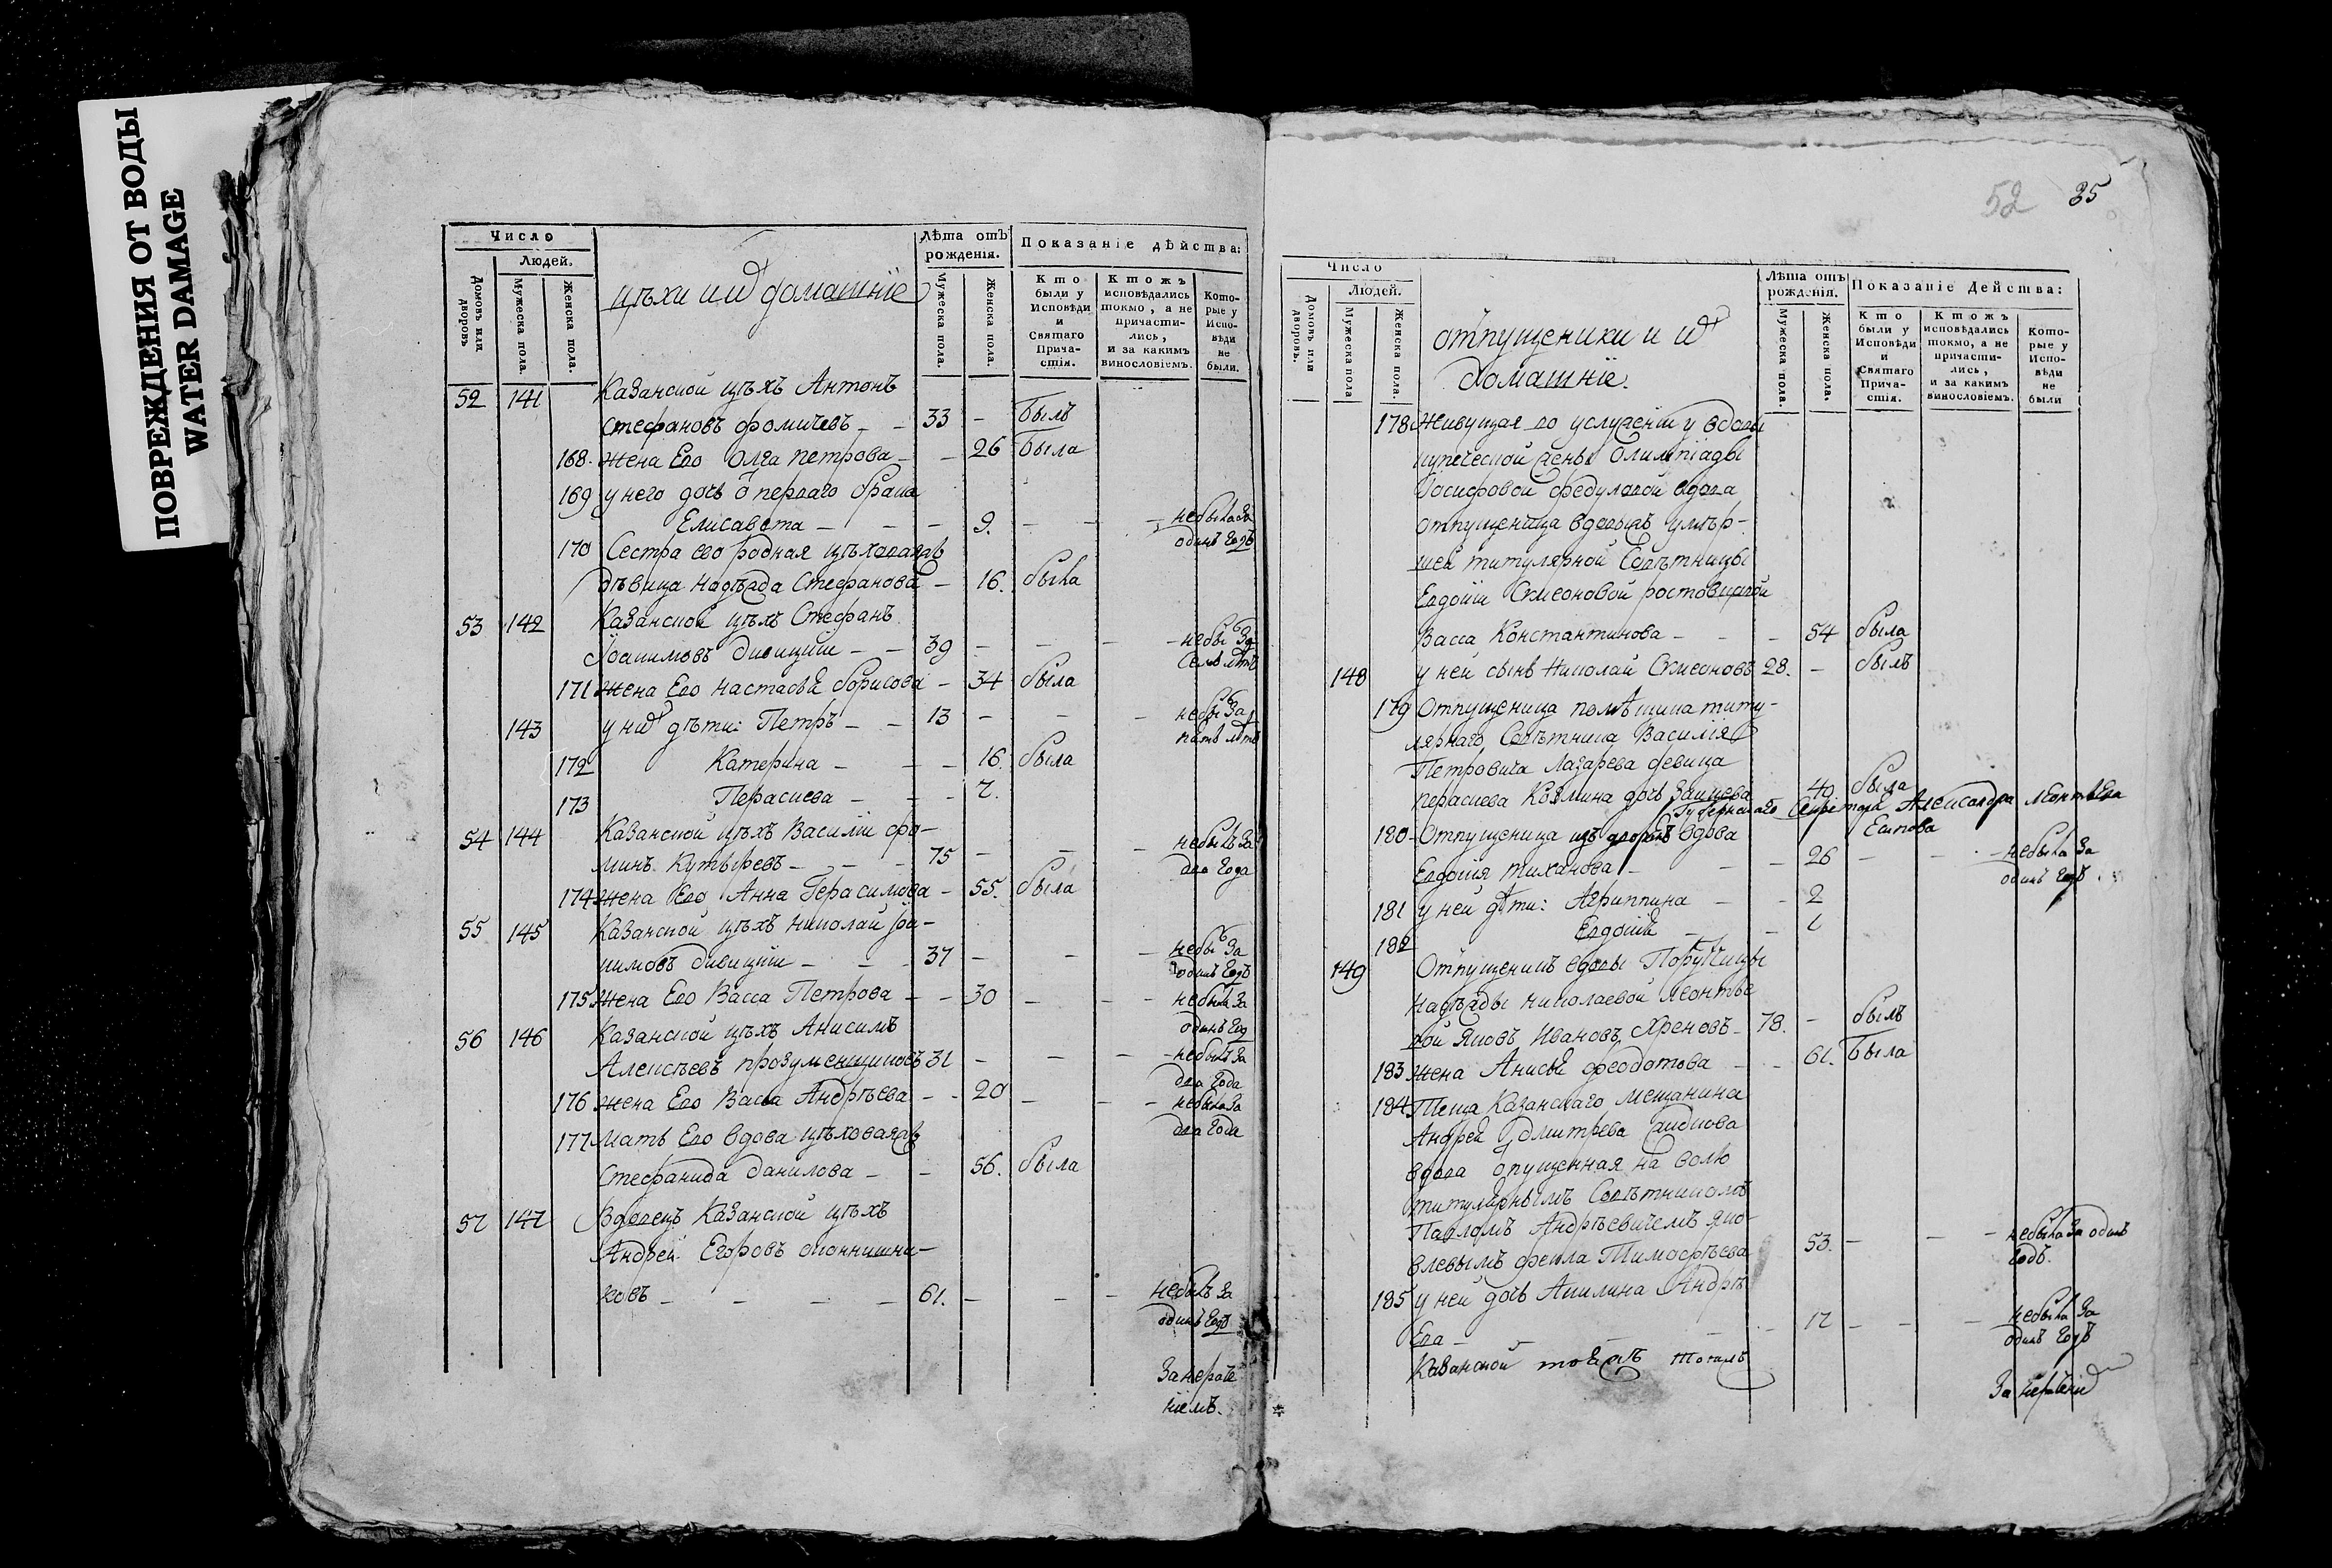 ПОВРЕЖДЕНИЯ ОТ ВОДЫ
WATER DAMAGE
Число
Людей.
Домовъ или дворовъ
Мужеска пола.
Женска пола.
цѣхи и их домашніе
Лѣта отъ рожденія.
Мужеска пола.
Женска пола.
Показаніе дѣйства:
Кто были у Исповѣди и Святаго Прича- стія.
Ктожъ исповѣдались токмо, а не причасти- лись, и за какимъ винословіемъ.
Кото- рые у Испо- вѣди не были.
52 141 Казанской цѣхъ Антонъ
Стефановъ фомичевъ – – 33 – былъ
168. жена Его Олга петрова – – 26 была
169 у него дочь о перваго брака
Елисавета – – – 9. – – – небыла за
одинъ Годъ
170 Сестра его родная цѣховая
дѣвица надѣжда Стефанова – 16. была
53 142 Казанской цѣхъ Стефанъ
Іоакимовъ – – 39 – – – – небы за
Семь лѣтъ
171 жена Его настасья борисова – 34 была
143 у них дѣти: Петръ – – 13 – – – небы за
пять лѣтъ
172 Катерина – – – 16. была
173 Параскева – – – 7.
54 144 Казанской цѣхъ Василій фо–
минъ Кутыревъ – – – 75 – – – небылъ за
два Года
174 жена Его Анна Герасимова – 55. была
55 145 Казанской цѣхъ николай іоа–
кимовъ – – – 37 – – – небы за
одинъ Годъ
175 жена Его Васса Петрова – – 30 – – – небыла за
одинъ Год
56 146 Казанской цѣхъ Анисимъ
Алексѣевъ прозуменщиковъ 31 – – – – небылъ за
два Года
176 жена Его Васса Андрѣева – – 20 – – – небыла за
два Года
177 Мать Его вдова цѣховая
Стефанида данилова – – 56. была
57 147 Вдовецъ Казанской цѣхъ
Андрей Егоровъ оконнишни–
ковъ – – – – 61. – – – небылъ за
одинъ Годъ
За нераче
ніемъ.
52 35
Число
Людей.
Домовъ или дворовъ.
Мужеска пола
Женска пола.
отпущеники и их
домашніе.
Лѣта отъ рожденія.
Мужеска пола.
Женска пола.
Показаніе Действа:
Кто были у Исповѣди и Святаго Прича- стія.
Ктожъ исповѣдались токмо, а не причасти- лись, и за какимъ винословіемъ.
Кото- рые у Испо- вѣди не были
178 Живущая во услуженіи у вдовы
купеческой жены Олимпіады
Іосифовой федуловой вдова
отпущеница умѣр–
шей титулярной Совѣтницы
Евдокіи Симеоновой
Васса Константинова – – – 54 была
148 у ней сынъ Николай Симеоновъ 28. – былъ
179 Отпущеница помѣщика титу–
лярнаго Совѣтника Василія
Петровича Лазарева девица
параскева Козмина дочь Зайцева 49 была
Губернскаго Секретаря Александра Леонтьева
180 Отпущеница вдова Еспова
Евдокія тиханова – – – 26 – – – небыла за
одинъ Годъ
181 у ней дѣти: Агриппина – – 2
182 Евдокія – – 1
149 Отпущеникъ вдовы Поручицы
надѣжды николаевой Леонтье
вой Яковъ Ивановъ Хреновъ – 78. – былъ
183 жена Анисья феодотова – – 61. была
184 Теща Казанскаго мещанина
Андрей дмитрева
вдова опущенная на волю
титулярнымъ Совѣтникомъ
Павломъ Андрѣевичемъ яко–
влевымъ фекла Тимофѣева 53. – – – небыла за одинъ
Годъ.
185 у ней дочь Акилина Андрѣ
Ева – – – – – 17 – – – небыла за
одинъ Годъ
Казанской
За нераченіе